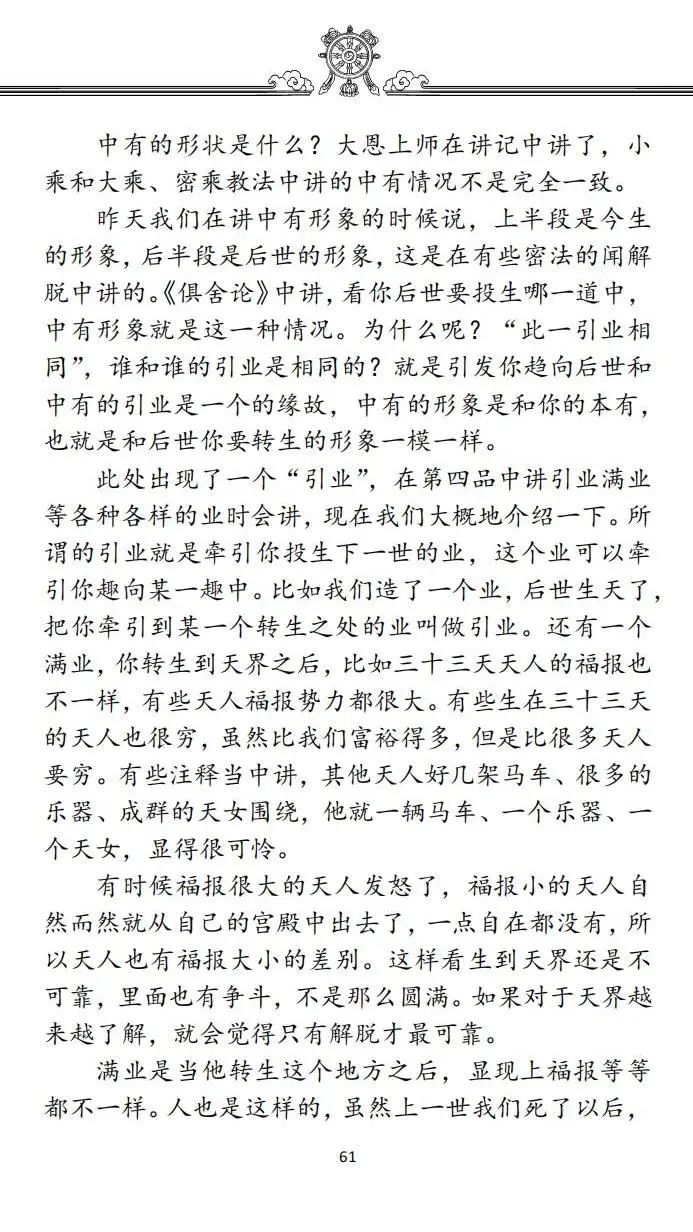 中有的形状是什么？大恩上师在讲记中讲了，小
乘和大乘、密乘教法中讲的中有情况不是完全一致。
昨天我们在讲中有形象的时候说，上半段是今生
的形象，后半段是后世的形象，这是在有些密法的闻解
脱中讲的。《俱舍论》中讲，看你后世要投生哪一道中，
中有形象就是这一种情况。为什么呢？“此一引业相
同”，谁和谁的引业是相同的？就是引发你趋向后世和
中有的引业是一个的缘故，中有的形象是和你的本有，
也就是和后世你要转生的形象一模一样。
此处出现了一个“引业”，在第四品中讲引业满业
等各种各样的业时会讲，现在我们大概地介绍一下。所
谓的引业就是牵引你投生下一世的业，这个业可以牵
引你趣向某一趣中。比如我们造了一个业，后世生天了，
把你牵引到某一个转生之处的业叫做引业。还有一个
满业，你转生到天界之后，比如三十三天天人的福报也
不一样，有些天人福报势力都很大。有些生在三十三天
的天人也很穷，虽然比我们富裕得多，但是比很多天人
要穷。有些注释当中讲，其他天人好几架马车、很多的
乐器、成群的天女围绕，他就一辆马车、一个乐器、一
个天女，显得很可怜。
有时候福报很大的天人发怒了，福报小的天人自
然而然就从自己的宫殿中出去了，一点自在都没有，所
以天人也有福报大小的差别。这样看生到天界还是不
可靠，里面也有争斗，不是那么圆满。如果对于天界越
来越了解，就会觉得只有解脱才最可靠。
满业是当他转生这个地方之后，显现上福报等等
都不一样。人也是这样的，虽然上一世我们死了以后，
61